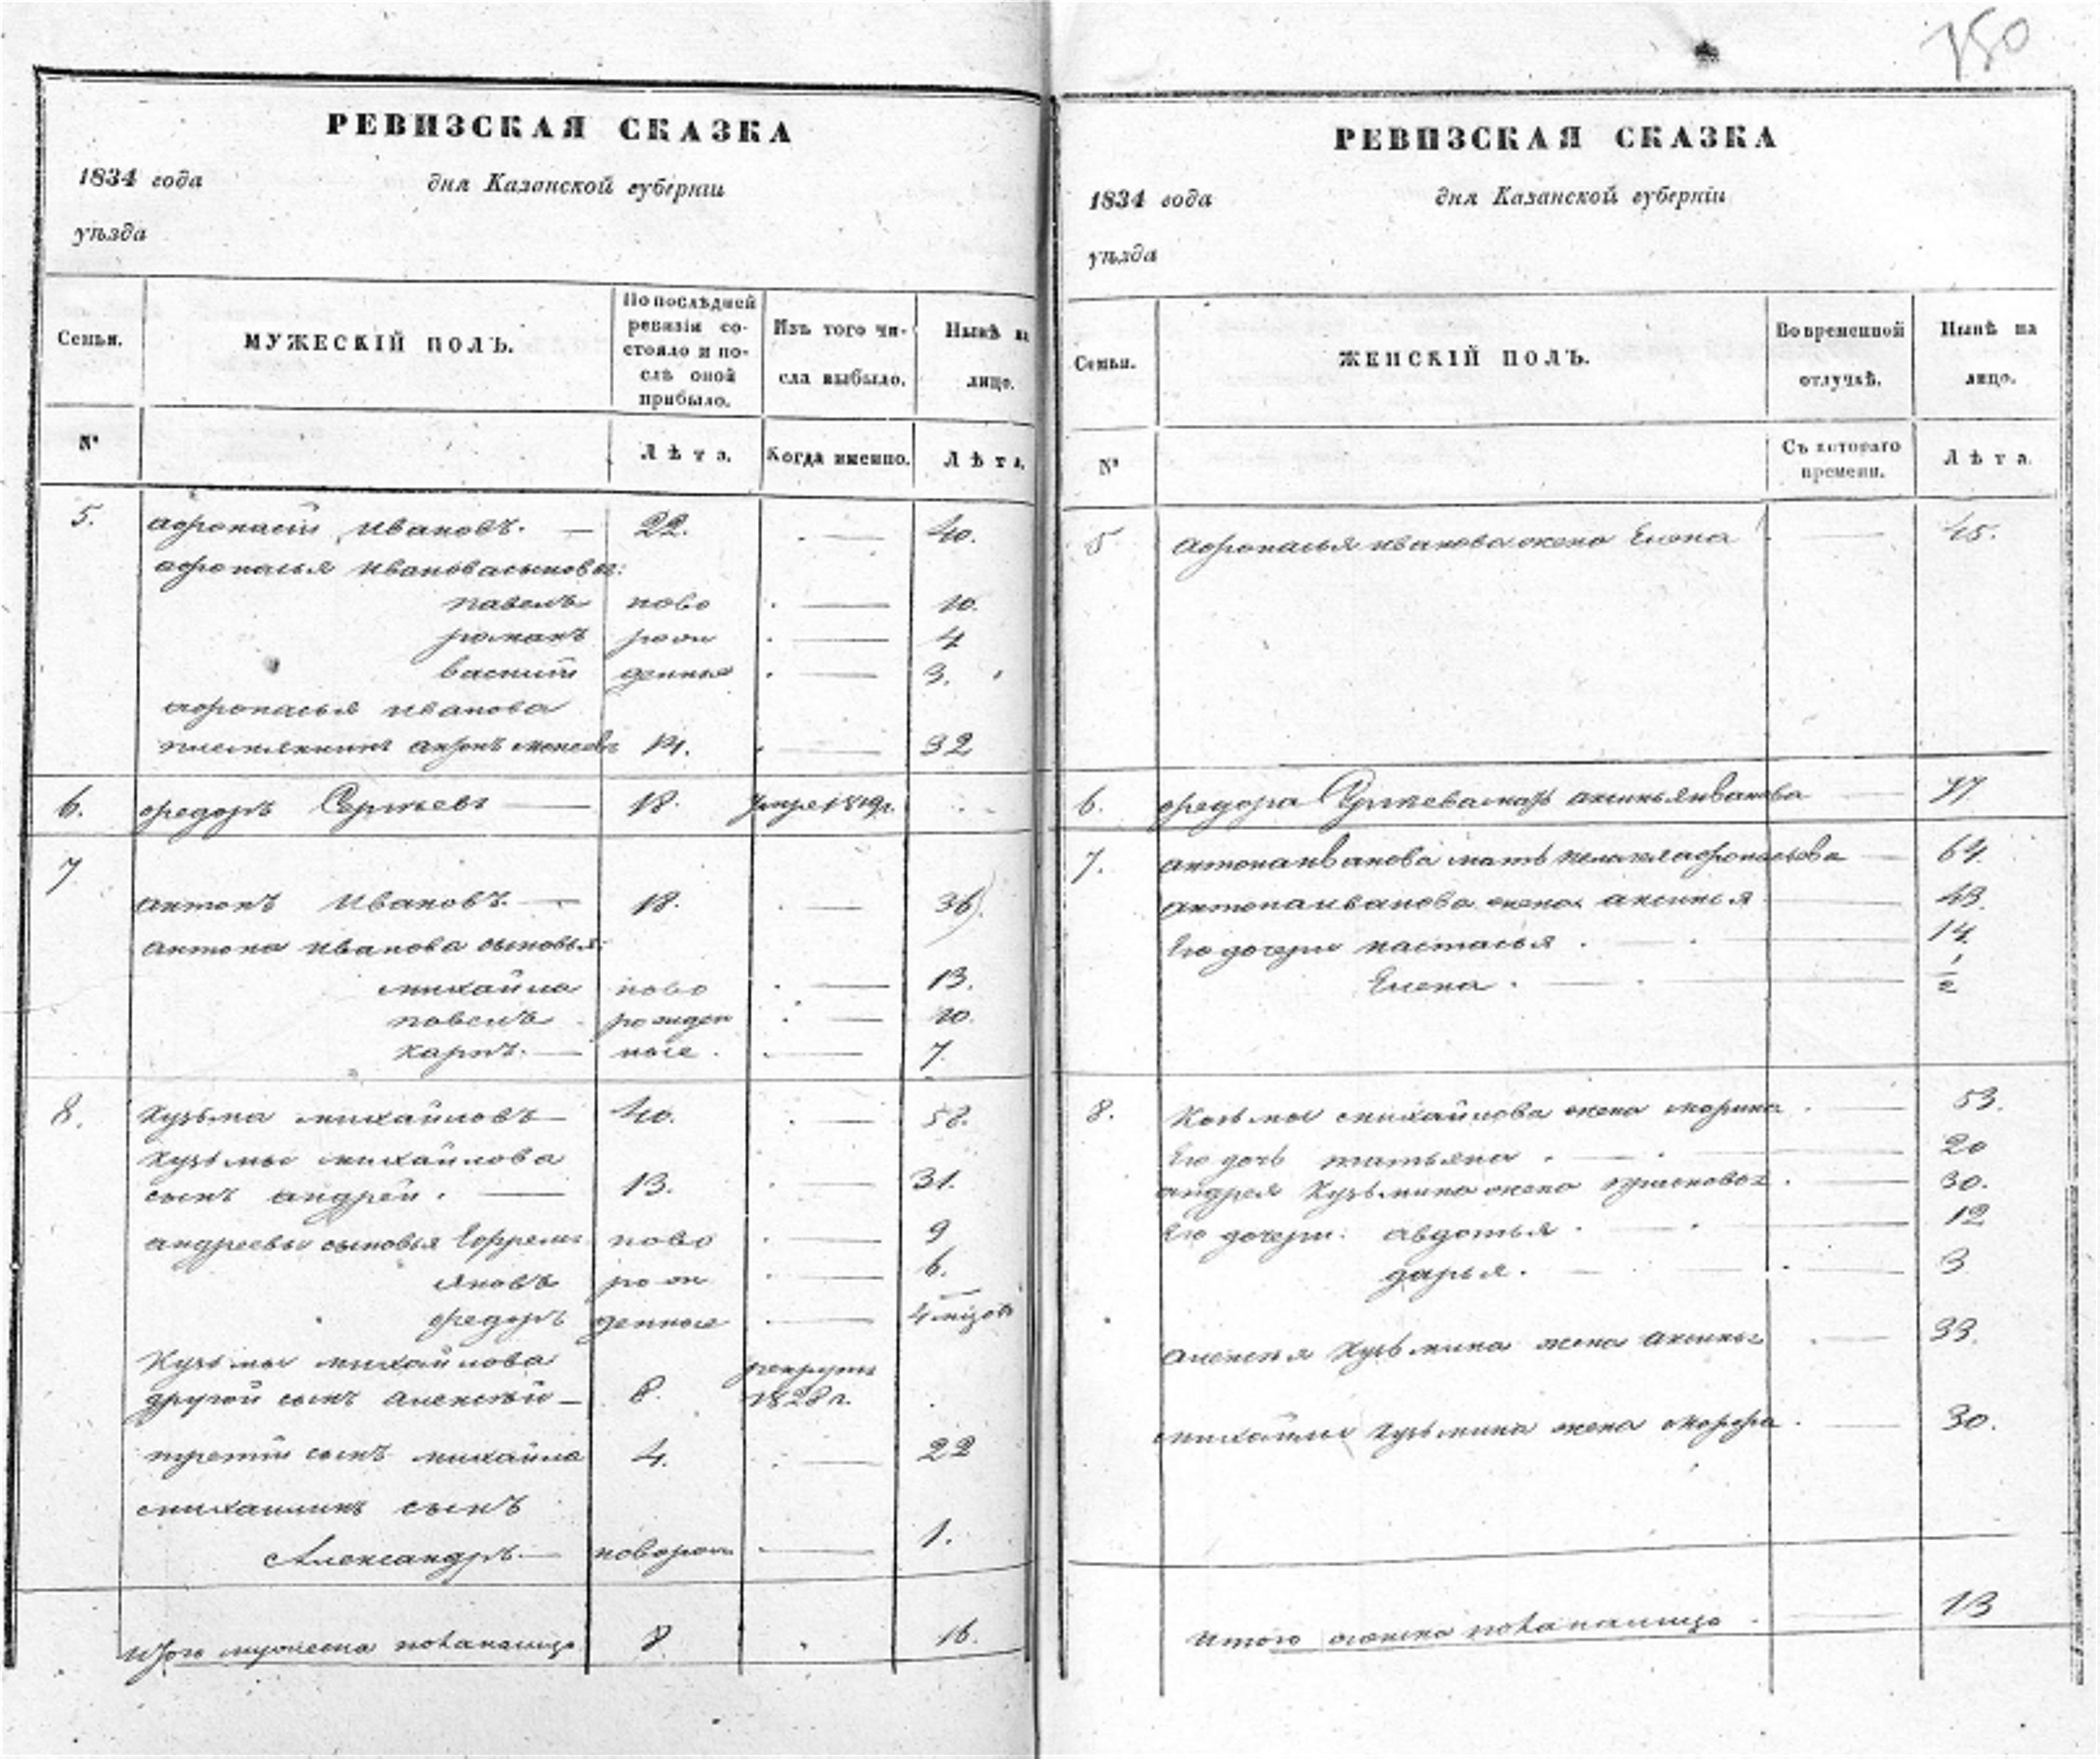 750
РЕВИЗСКАЯ СКАЗКА
1834 года дня Казанской губерніи
уѣзда
Семьи. МУЖЕСКІЙ ПОЛЪ. По послѣдней ревизіи состояло и послѣ оной прибыло. Изъ того числа выбыло. Нынѣ на лицо.
№ Лѣта. Когда именно. Лѣта.
5. афонасій Ивановъ. — 22. — 40.
афонасья Иванова сыновья:
павелъ ново — 10.
романъ рож — 4
василій денныя — 3.
афонасья Иванова
племянникъ антонъ 14. — 32
6. федоръ Сергѣевъ — 18. Умре 1819г.
7
антонъ Ивановъ — 18. — 36
антона Иванова сыновья:
михайла ново — 13.
павелъ рожден — 10.
карпъ. — ные. — 7.
8. Кузьма михайловъ — 40. — 58.
Кузьмы михайлова
сынъ андрей. — 13. — 31.
андреевы сыновья ново — 9
яковъ рож — 6.
федоръ денные — 4
Кузьмы михайлова рекрутъ
другой сынъ алексѣй — 8. 1828 г.
третій сынъ михайла 4. — 22
михайлинъ сынъ
Александръ. — — 1.
Итого мужеска пола налицо 8. 16.
РЕВИЗСКАЯ СКАЗКА
1834 года дня Казанской губерніи
уѣзда
Семьи. ЖЕНСКІЙ ПОЛЪ. Во временной отлучкѣ. Нынѣ на лицо.
№ Съ котораго времени. Лѣта.
5 афонасья иванова жена Елена — 45.
6. федора Сергѣева мать аксинья иванова — 77
7. антона иванова мать пелагея афонасьева — 64.
антона иванова жена аксинья — 43.
Его дочери настасья. — 14.
Елена. — 1/2
8. Козьмы михайлова жена марина. — 53.
Его дочь татьяна. — 20
андрея Кузьмина жена прасковья. — 30.
Его дочери: авдотья. — 12
дарья. — 3
алексѣя Кузьмина жена аксинья — 33.
михайлы Кузьмина жена — 30.
Итого женска пола налицо — 13